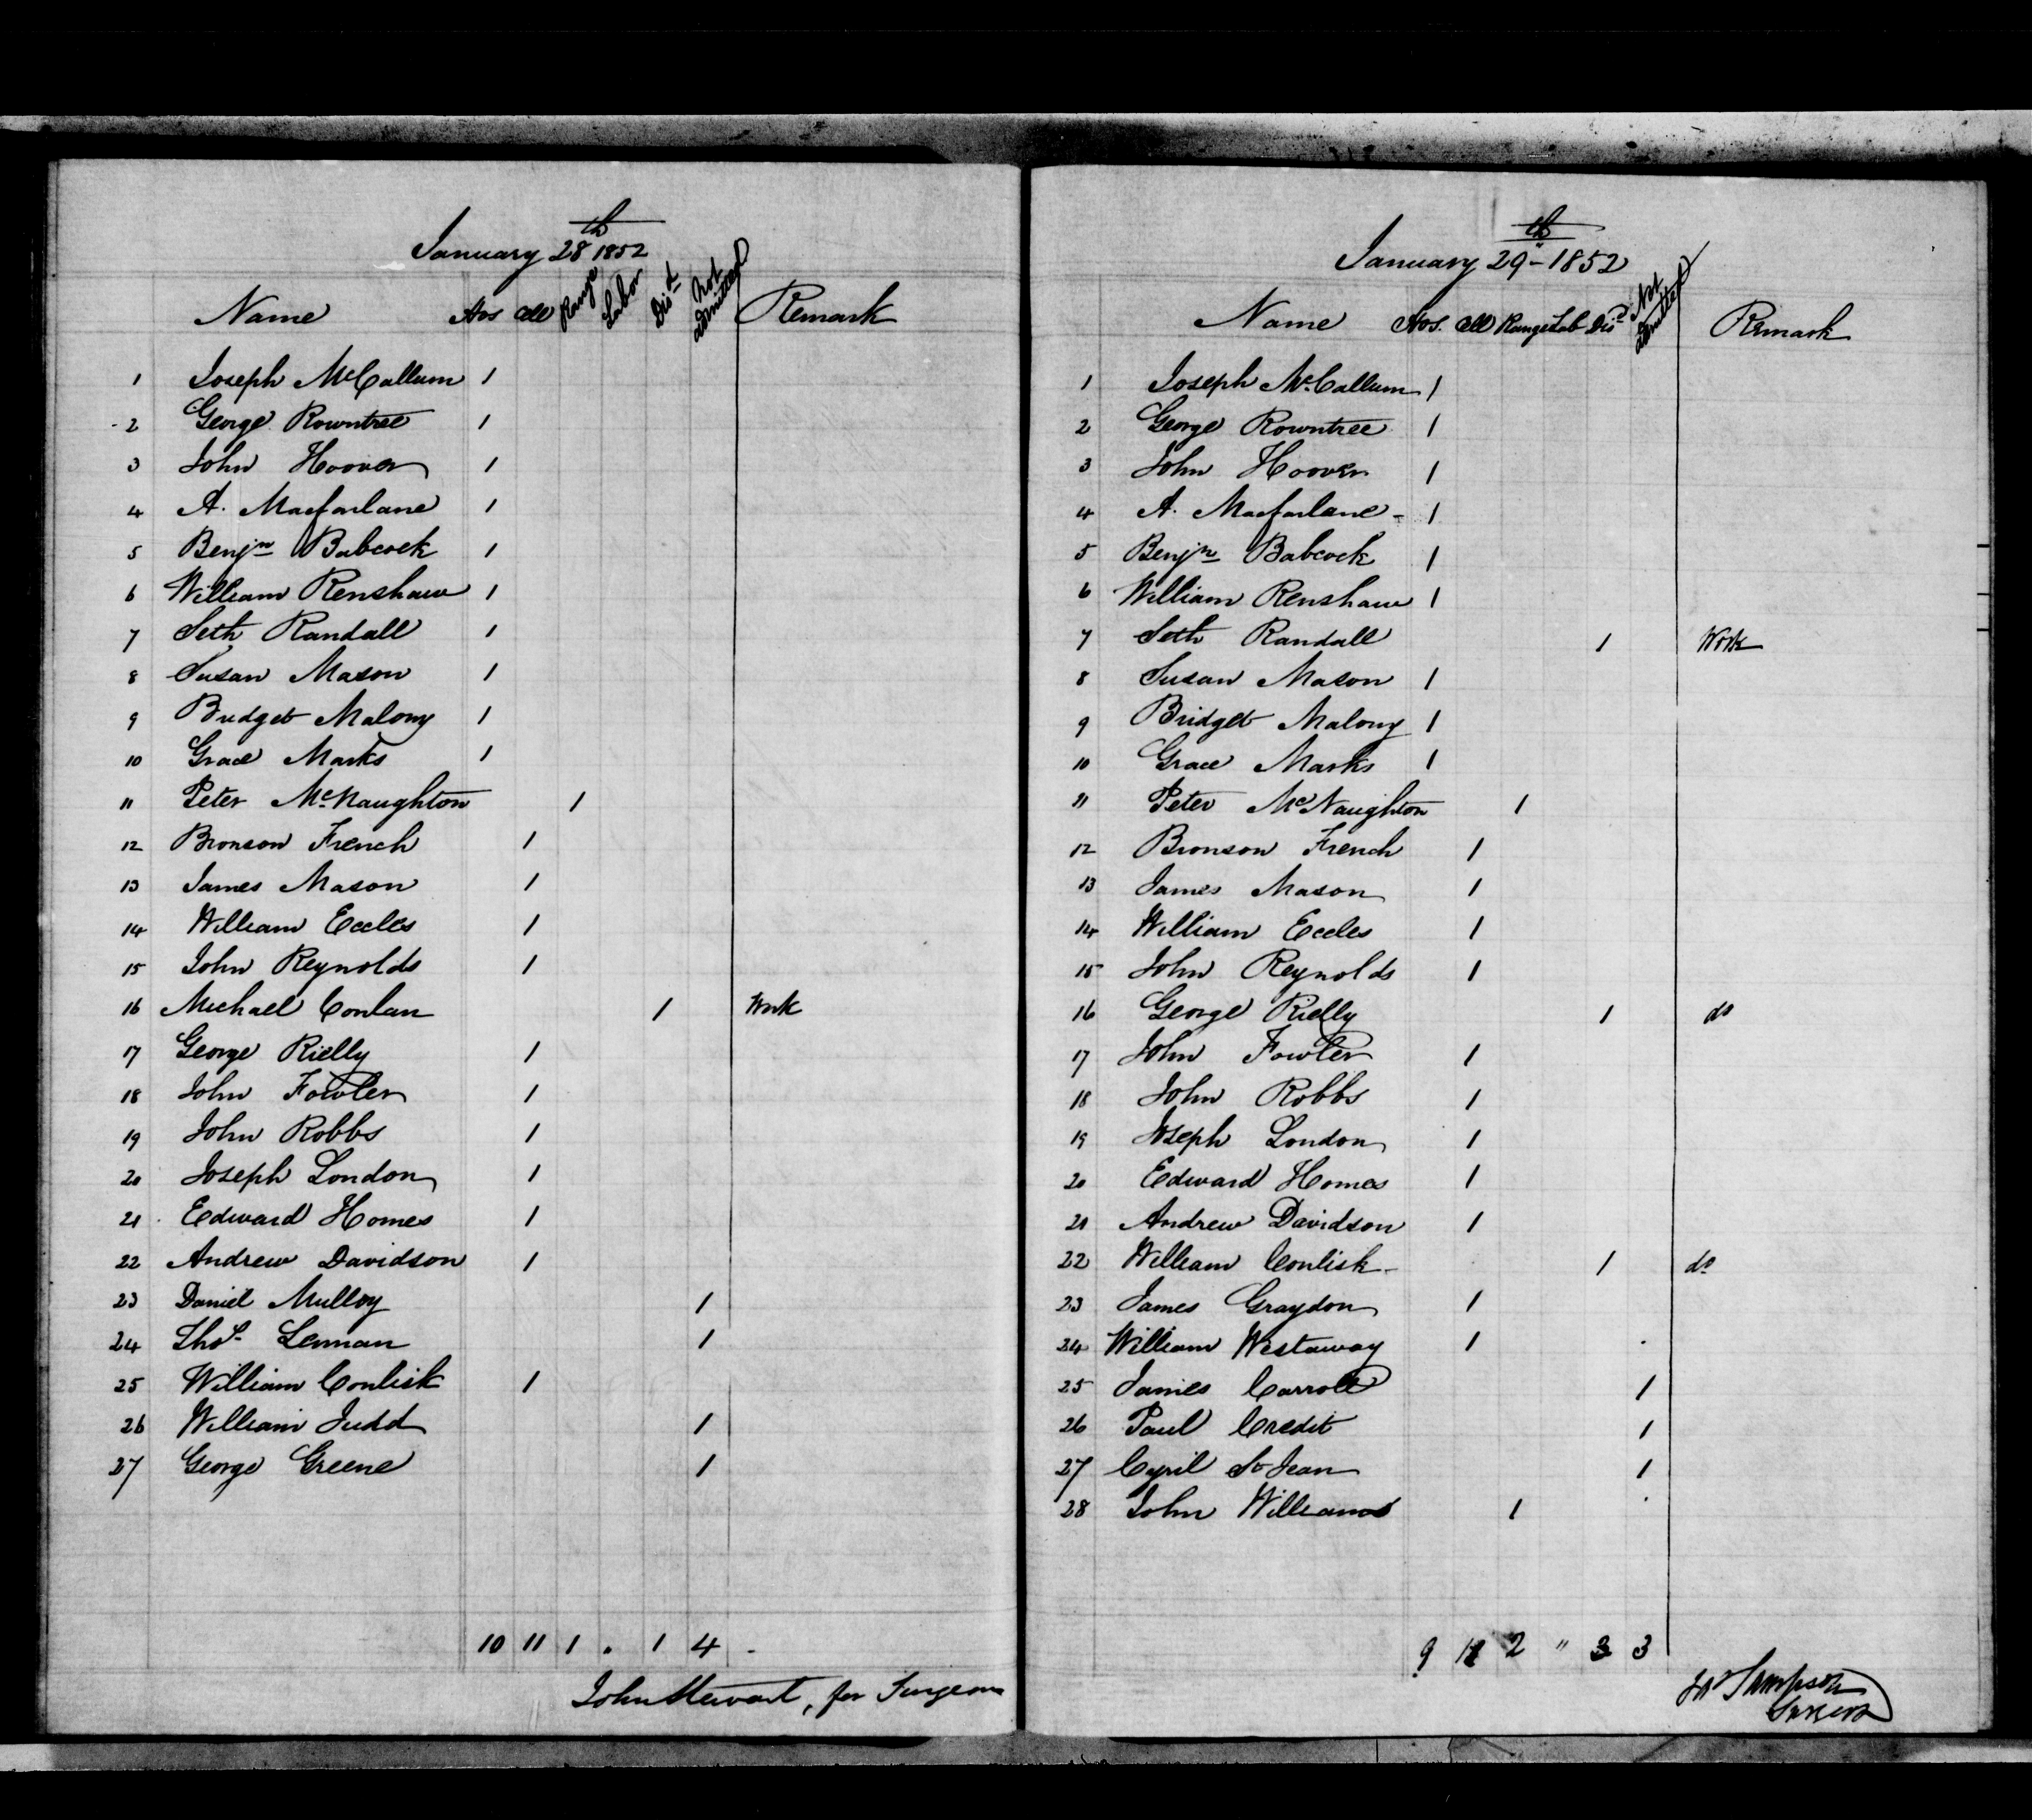 January 28th 1852
Name Hos Cell Range Labor Disd Not admitted Remark
1 Joseph McCallum 1
2 George Rowntree 1
3 John Hoover 1
4 A. Macfarlane 1
5 Benjn Babcock 1
6 William Renshaw 1
7 Seth Randall 1
8 Susan Mason 1
9 Bridget Malony 1
10 Grace Marks 1
11 Peter McNaughton 1
12 Bronson French 1
13 James Mason 1
14 William Eccles 1
15 John Reynolds 1
16 Michael Conlan 1 Work
17 George Rielly 1
18 John Fowler 1
19 John Robbs 1
20 Joseph London 1
21 Edward Homes 1
22 Andrew Davidson 1
23 Daniel Mulloy 1
24 Thos. Lennan 1
25 William Conlisk 1
26 William Judd 1
27 George Greene 1
10 11 1 " 1 4 -
John Stewart, for Surgeon
January 29th - 1852
Name Hos. Cell Range Lab Disd Not admitted Remark
1 Joseph McCallum 1
2 George Rowntree 1
3 John Hoover 1
4 A. Macfarlane - 1
5 Benjn Babcock 1
6 William Renshaw 1
7 Seth Randall 1 Work
8 Susan Mason 1
9 Bridget Malony 1
10 Grace Marks 1
11 Peter McNaughton 1
12 Bronson French 1
13 James Mason 1
14 William Eccles 1
15 John Reynolds 1
16 George Rielly 1 do
17 John Fowler 1
18 John Robbs 1
19 Joseph London 1
20 Edward Homes 1
21 Andrew Davidson 1
22 William Conlisk - 1 do
23 James Graydon 1
24 William Westaway 1
25 James Carroll 1
26 Paul Credit 1
27 Cyril St Jean 1
28 John Williams 1
9 2 " 3 3
Sampson
Surgeon